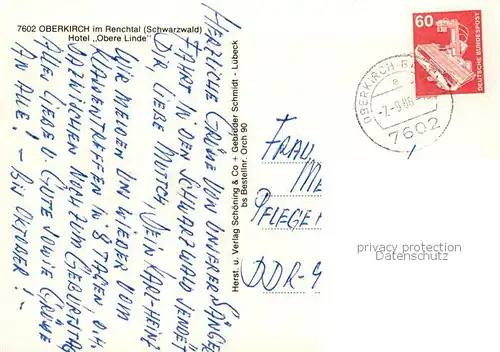 7602 OBERKIRCH im Renchtal (Schwarzwald)
Hotel „Obere Linde"
HERZLICHE GRÜßE VON UNSERER SÄNGER
FAHRT IN DEN SCHWARZWALD SENDET
DIR LIEBE MUTSCH, DEIN KARL-HEINZ
WIR MELDEN UNS WIEDER VOM
KLASSENTREFFEN IN 8 TAGEN O.H.
NOCH ZUM GEBURTSTAG
ALLES LIEBE U. GUTE SOWIE GRÜßE
AN ALLE! - BIS OKTOBER!
Herst. u. Verlag Schöning & Co + Gebrüder Schmidt - Lübeck
bs Bestellnr. Orch 90
FRAU
ME
PFLEGE
DDR-4
60
DEUTSCHE BUNDESPOST
OBERKIRCH
e
7602
privacy protection